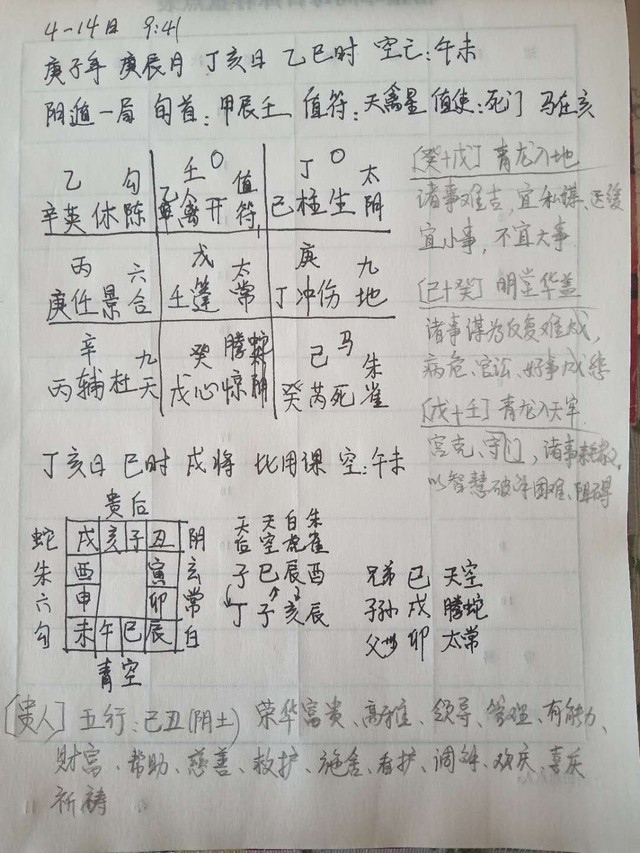 4-14日 9:41
庚子年 庚辰月 丁亥日 乙巳时 空亡:午未
阴遁一局 旬首:甲辰壬 值符:天禽星 值使:死门 马在亥
乙 勾
辛英休陈
壬 〇 值
乙辛禽开符
丁 〇 太
己柱生阴
丙 六
庚任景合
戊 太
壬蓬 常
庚 九
丁冲伤地
辛 九
丙辅杜天
癸 腾蛇
戊心惊阴
己 马 朱
癸芮死雀
[癸+戊] 青龙入地
诸事难吉,宜私谋、迟缓
宜小事,不宜大事
[己+癸] 明堂华盖
诸事谋为反复难成,
病危、官讼、好事成悲
[戊+壬] 青龙入天牢
宫克、守门,诸事耗散,
以智慧破许困难、阻碍
丁亥日 巳时 戌将 比用课 空:午未
贵后
蛇 戌亥子丑 阴
朱 酉 寅 玄
六 申 卯 常
勾 未午巳辰 白
青空
天 天 白 朱
后 空 虎 雀
子 巳 辰 酉
丁 子 亥 辰
兄弟 巳 天空
子孙 戌 腾蛇
父母 卯 太常
[贵人] 五行:己丑(阴土) 荣华富贵、高雅、领导、管理、有能力、
财富、帮助、慈善、救护、施舍、看护、调解、欢庆、喜庆
祈祷